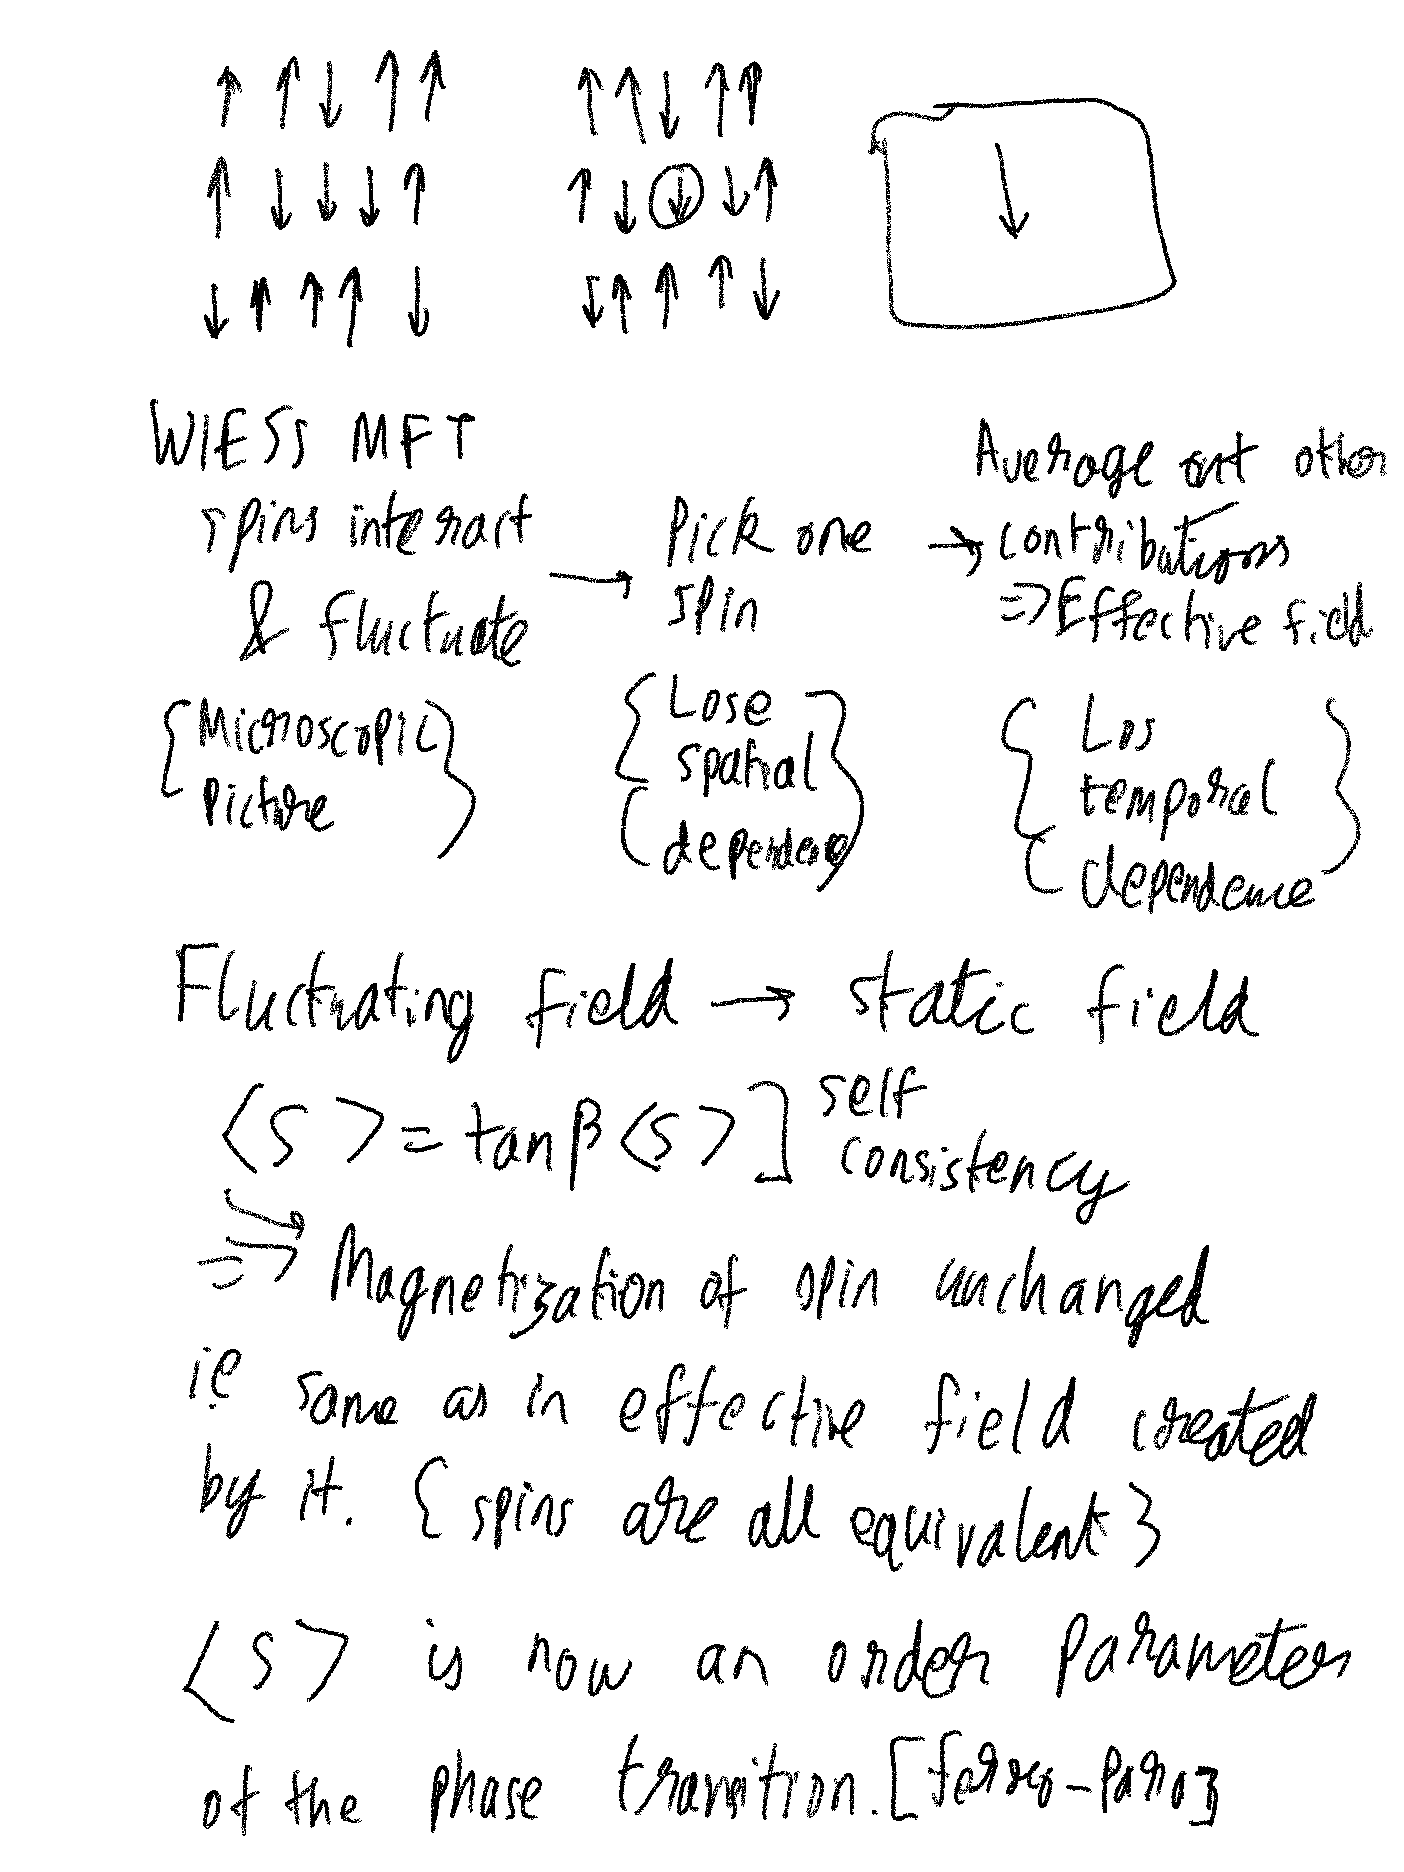 WIESS MFT
spins interact
& fluctuate
→ Pick one
spin
→ Average out other
contributions
⇒ Effective field
{Microscopic
Picture}
{Lose
spatial
dependence}
{Los
temporal
dependence}
Fluctuating field → static field
<s> = tanβ<s>] self
consistency
⇒ Magnetization of spin unchanged
i.e same as in effective field created
by it. {spins are all equivalent}
<s> is now an order parameter
of the phase transition. [ferro-para]